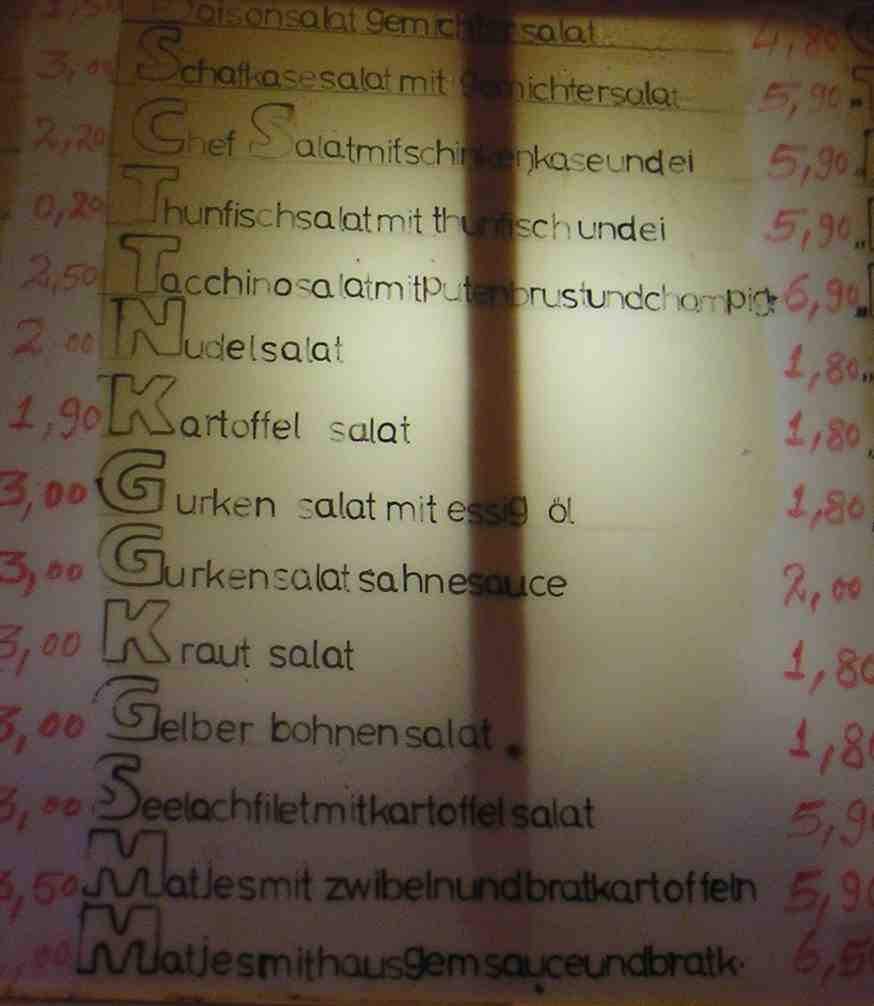 salat gemichter salat 4,80
3,00 Schafkasesalat mit gemichtersalat 5,90
2,20 Chef Salatmitschinkenkaseundei 5,90
0,20 Thunfischsalatmit thunfisch undei 5,90
2,50 TacchinosalatmitPutenbrustundchampig 6,90
2 00 Nudelsalat 1,80
1,90 Kartoffel salat 1,80
3,00 Gurken salat mit essig öl 1,80
3,00 Gurkensalat sahnesauce 2,00
3,00 Kraut salat 1,80
3,00 Gelber bohnensalat 1,8
3,00 Seelachfiletmitkartoffelsalat 5,9
3,50 Matjesmit zwibelnundbratkartoffeln 5,90
,00 Matjesmithausgemsauceundbratk. 6,5